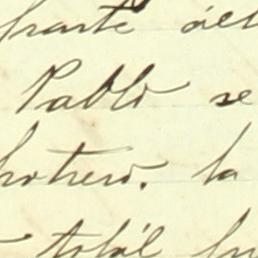 parte del
Pablo se
potrero. la
total